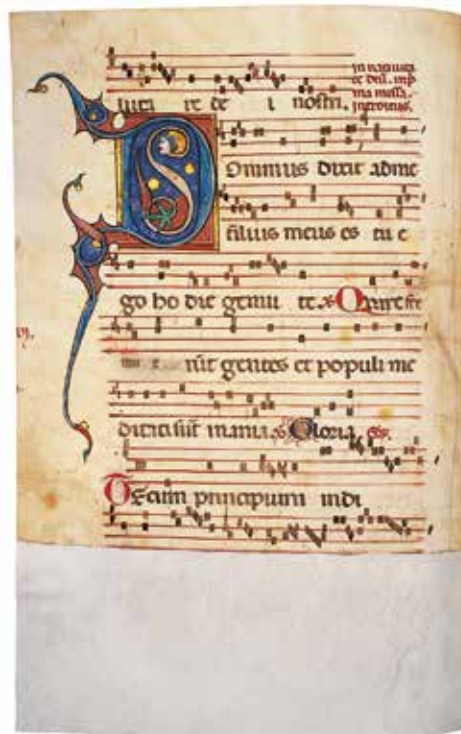 in nativita
te dñi. in p
ma missa.
introitus.
re de i nostri.
Ominus dixit ad me
filius meus es tu e
go ho die genui te. Quare fre
e runt gentes et populi me
ditati sūt inania. Gloria
Tecum principium in di